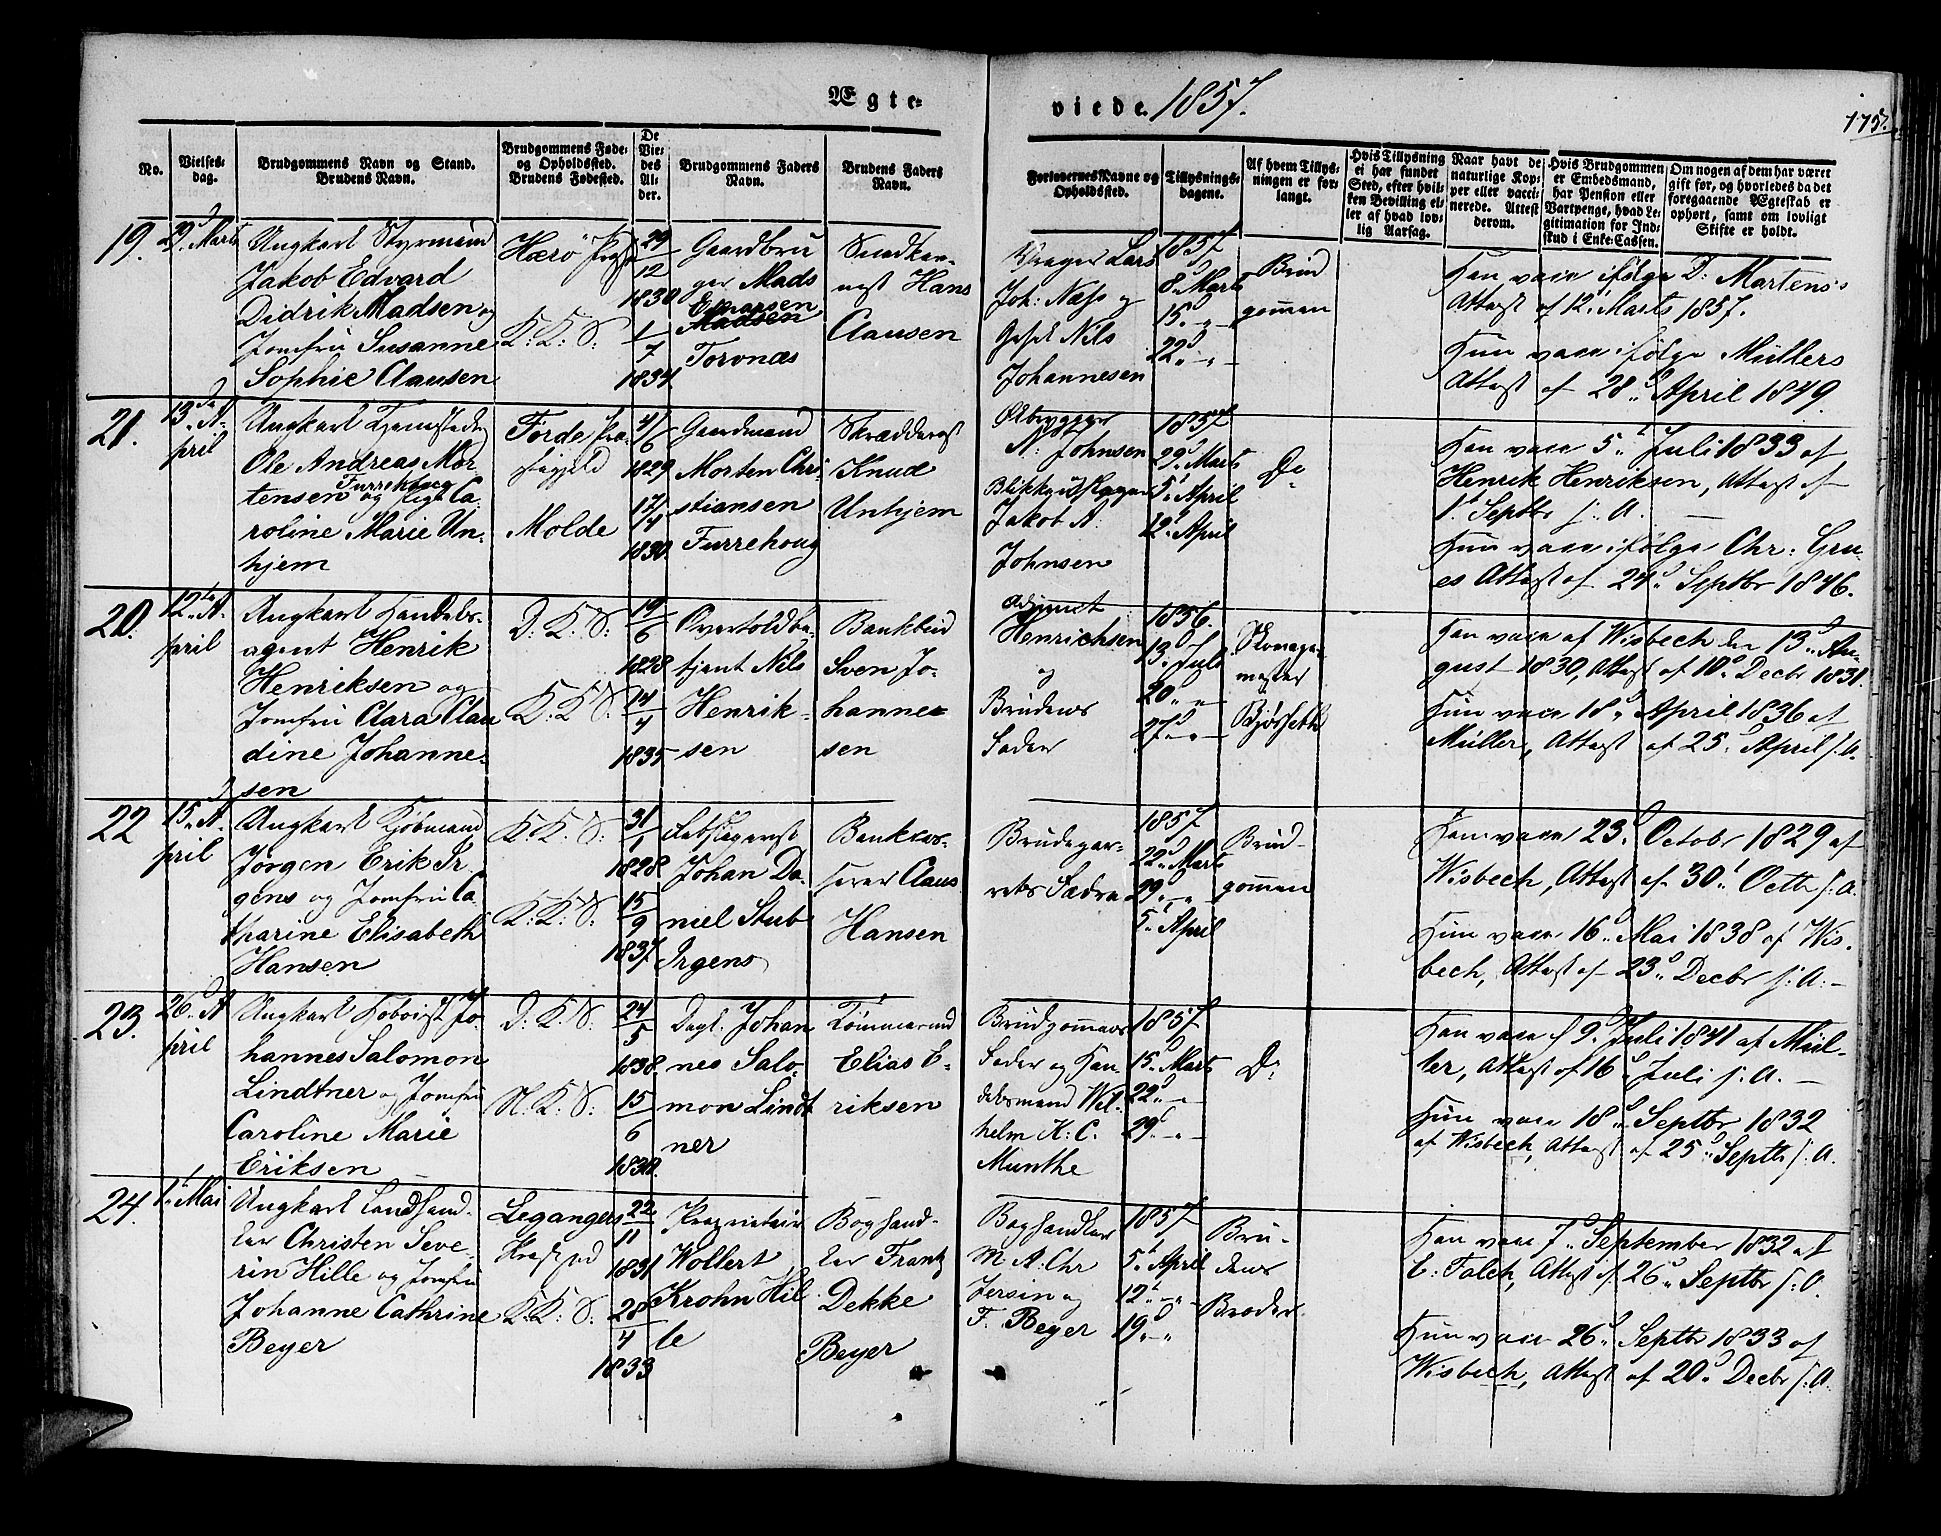 Ægte-
viede 1857.
175.
No.
Vielses-
dag.
Brudgommens Navn og Stand.
Brudens Navn.
Brudgommens Føde-
og Opholdssted.
Brudens Fødested.
De
Vie-
des
Al-
der.
Brudgommens Faders
Navn.
Brudens Faders
Navn.
Forlovernes Navne og
Opholdssted.
Tillysnings-
dagene.
Af hvem Tillys-
ningen er for-
langt.
Hvis Tillysning
ei har fundet
Sted, efter hvil-
ken Bevilling el-
ler af hvad lov-
lig Aarsag.
Naar havt de
naturlige Kop-
per eller vacci-
nerede. Attest
derom.
Hvis Brudgommen
er Embedsmand,
har Pension eller
Vartpenge, hvad Le-
gitimation for Ind-
skud i Enke-Cassen.
Om nogen af dem har været
gift før, og hvorledes da det
foregaaende Ægteskab er
ophørt, samt om lovligt
Skifte er holdt.
19.
29d Marts
Ungkarl Styrmand
Jakob Edvard
Didrik Madsen og
Jomfru Susanne
Sophie Clausen
Herø Prgj
K: K: S:
29/12
1830
1/7
1834
Gaardbru
ger Mads
Enarsen
Madsen
Torvnæs
Hans
Clausen
Lars
Joh: Næss og
Nils
Johannesen
1857
8d Marts
15d „ -
22d „ -
Brud
gommen
Han vacc ifølge D: Martens's
Attest af 12t Marts 1857.
Hun vacc ifølge Müllers
Attest af 28d April 1849.
21.
13de A-
pril
Ungkarl
Ole Andreas Mor-
tensen Furrehoug
og Pige Ca-
roline Marie Un-
hjem
Førde Præ-
stegjeld
Molde
4/6
1829
17/4
1830.
Gaardmand
Morten Chri-
stiansen
Furrehoug
Knud
Unhjem
N: Johnsen
Jakob A:
Johnsen
1857
29d Marts
5t April
12t April
Do
Han vacc 5t Juli 1833 af
Henrik Henriksen, Attest af
1t Septbr s: A. —
Hun vacc ifølge Chr: Gru-
es Attest af 24d Septbr 1846.
20.
12te A-
pril
Ungkarl Handels-
agent Henrik
Henriksen og
Jomfru Clara Clau
dine Johanne-
sen
D: K: S:
K: K: S:
19/6
1828
14/4
1835
Overtoldbe-
tjent Nils
Henrik-
sen
Bankbud
Sven Jo-
hanne-
sen
Adjunct
Henrichsen
og
Brudens
Fader
1856.
13d Juli
20d „ -
27d „ -
mester
Han vacc af Wisbech den 13d Au-
gust 1830, Attest af 10d Decbr 1831.
Hun vacc 18d April 1836 af
Müller, Attest af 25d April s: A.
22
15d A-
pril
Ungkarl Kjøbmand
Jørgen Erik Ir-
gens og Jomfru Ca
tharine Elisabeth
Hansen
K: K: S:
K: K: S:
31/1
1828
15/9
1837
Johan Da-
niel Stub
Irgens
Bankcas-
serer Claus
Hansen
1857
22d Marts
29d „ -
5t April
Brud-
gommen
Han vacc 23d Octobr 1829 af
Wisbech, Attest af 30t Octbr s: A.
Hun vacc 16d Mai 1838 af Wis-
bech, Attest af 23d Decbr s: A: -
23.
26d A
pril
Ungkarl Hoboist Jo-
hannes Salomon
Lindtner og Jomfru
Caroline Marie
Eriksen —
D: K: S:
N: K: S:
24/5
1838.
15/6
1830.
Johan
nes Salo-
mon Lindt
ner
Tømmermand
Elias E-
riksen
Brudgommens
Fader og Han
delsmand Wil-
helm K: C.
Munthe
1857
15d Marts
22d „ -
29d „ -
Do
Han vacc d 9d Juli 1841 af Mül-
ler, Attest af 16d Juli s: A. -
Hun vacc 18d Septbr 1832
af Wisbech, Attest af 25d Septbr s: A.
24.
1t Mai
Ungkarl Landhand-
ler Christen Seve-
rin Hille og Jomfru
Johanne Cathrine
Beyer
Leganger
Præstgjd
K: K: S:
22/11
1831
28/4
1833
Proprietair
Wollert
Krohn Hil
le
Boghand-
ler Frantz
Dekke
Beyer
Boghandler
M. A: Chr
Jersin og
F. Beyer
1857
5t April
12t „ -
19d „ „
Bru-
dens
Broder
Han vacc 7d September 1832 af
E: Falch, Attest af 26d Septbr s: A.
Hun vacc 26d Septbr 1833 af
Wisbech, Attest af 20d Decbr s: A.